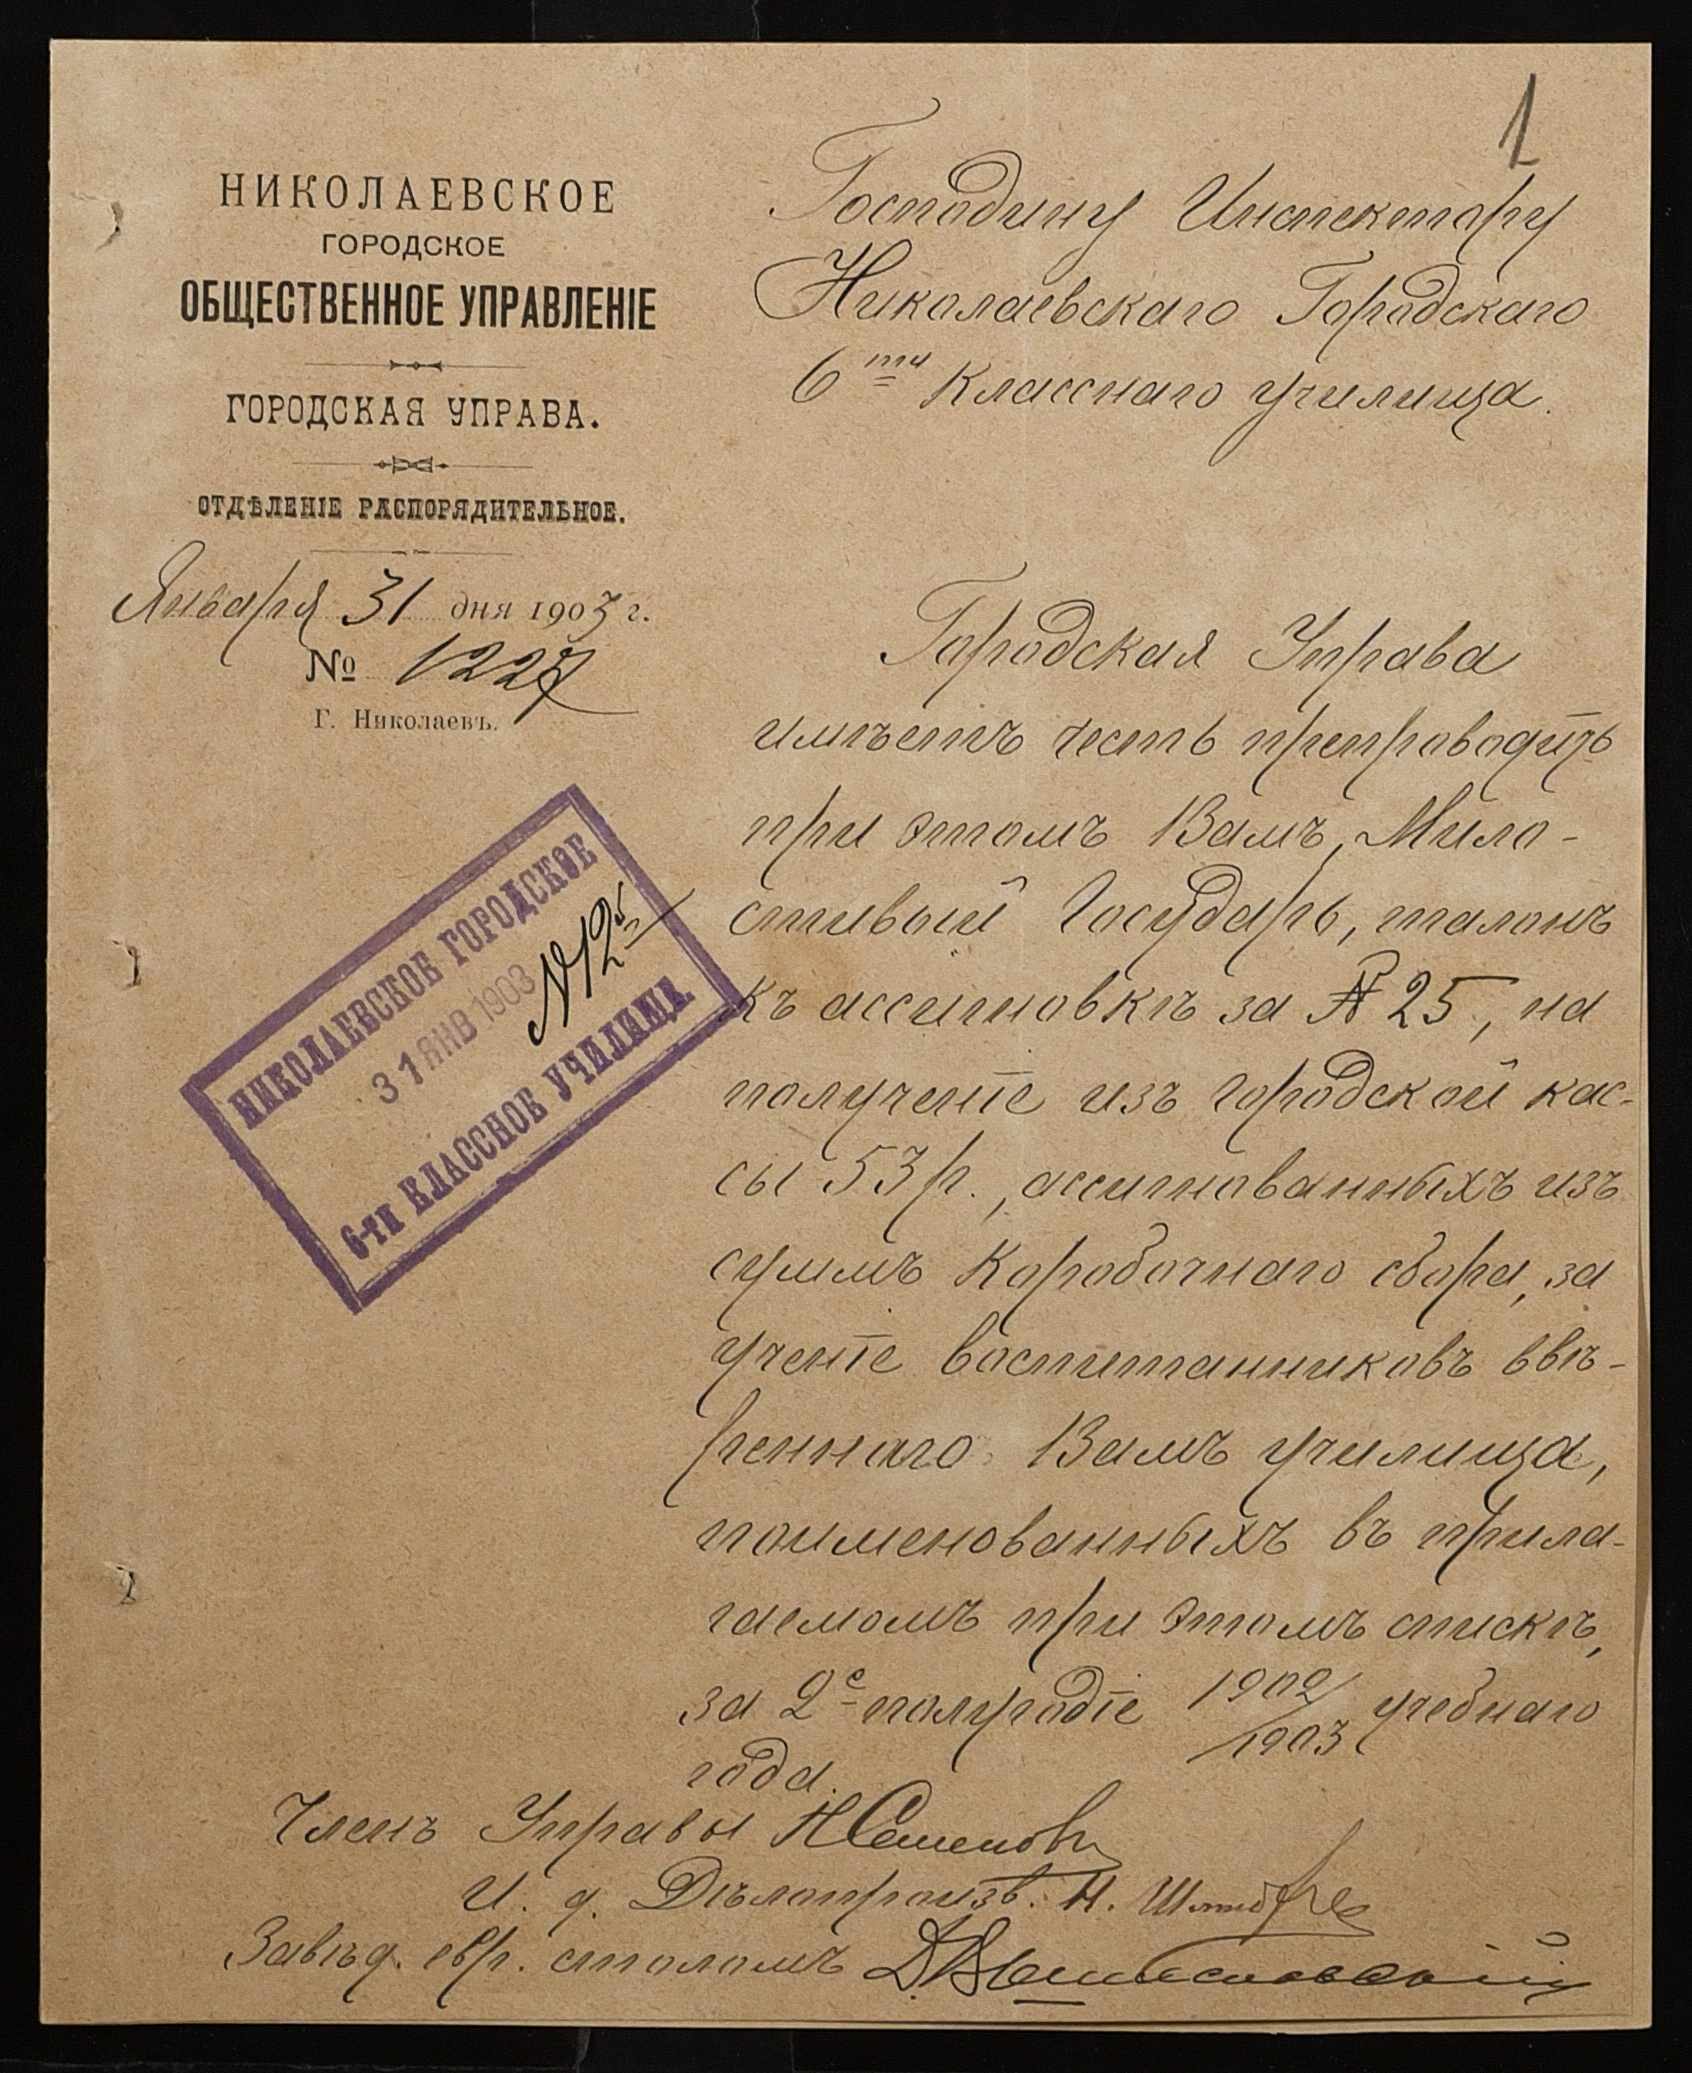 1
НИКОЛАЕВСКОЕ
ГОРОДСКОЕ
ОБЩЕСТВЕННОЕ УПРАВЛЕНІЕ
ГОРОДСКАЯ УПРАВА.
ОТДѢЛЕНІЕ РАСПОРЯДИТЕЛЬНОЕ.
Января 31 дня 1903 г.
№ 1227
Г. Николаевъ.
НИКОЛАЕВСКОЕ ГОРОДСКОЕ
31 ЯНВ 1903
№ 125
6-ТИ КЛАССНОЕ УЧИЛИЩЕ
Господину Инспектору
Николаевскаго Городскаго
6ти Класснаго училища.
Городская Управа
имѣетъ честь препроводить
при этомъ Вамъ, Мило-
стивый Государь, талонъ
къ ассигновкѣ за № 25, на
полученіе изъ городской кас-
сы 53 р., ассигнованныхъ изъ
суммъ Коробочнаго сбора, за
ученіе воспитанниковъ ввѣ-
реннаго Вамъ училища,
поименованныхъ въ прила-
гаемомъ при этомъ спискѣ,
за 2е полугодіе 1902/1903 учебнаго
года.
Членъ Управы Н Семеновъ
И. д. Дѣлопроизв. Н.
Завѣд. евр. столомъ